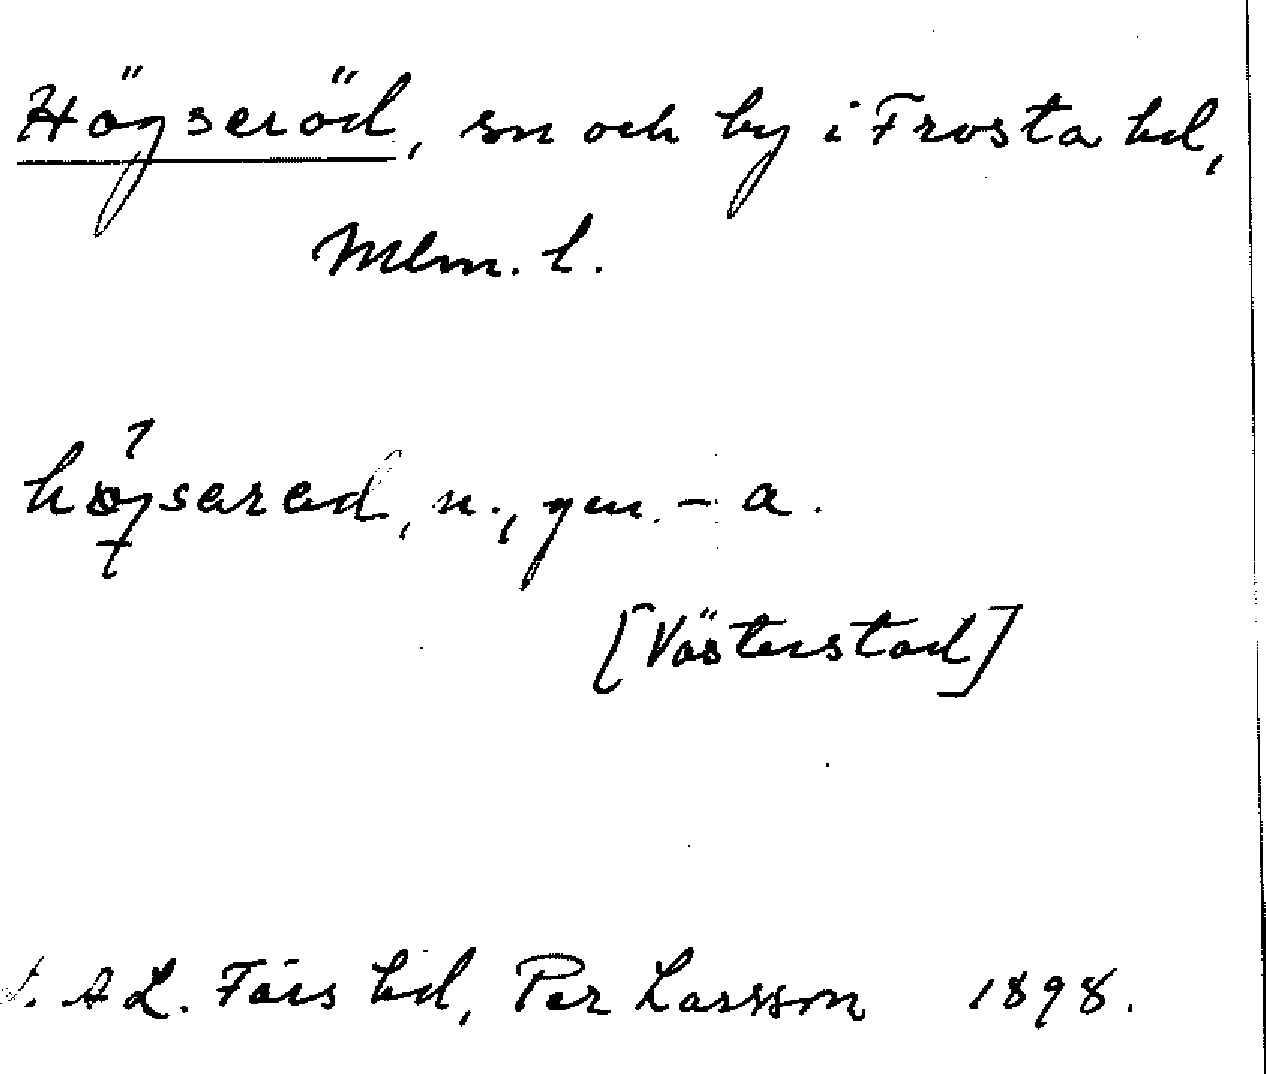 Högseröd, sn och by i Frosta hd,
Mlm. l.
högsarad, n., gen. -a.
[Västerstad]
A L. Färs hd, Per Larsson 1898.